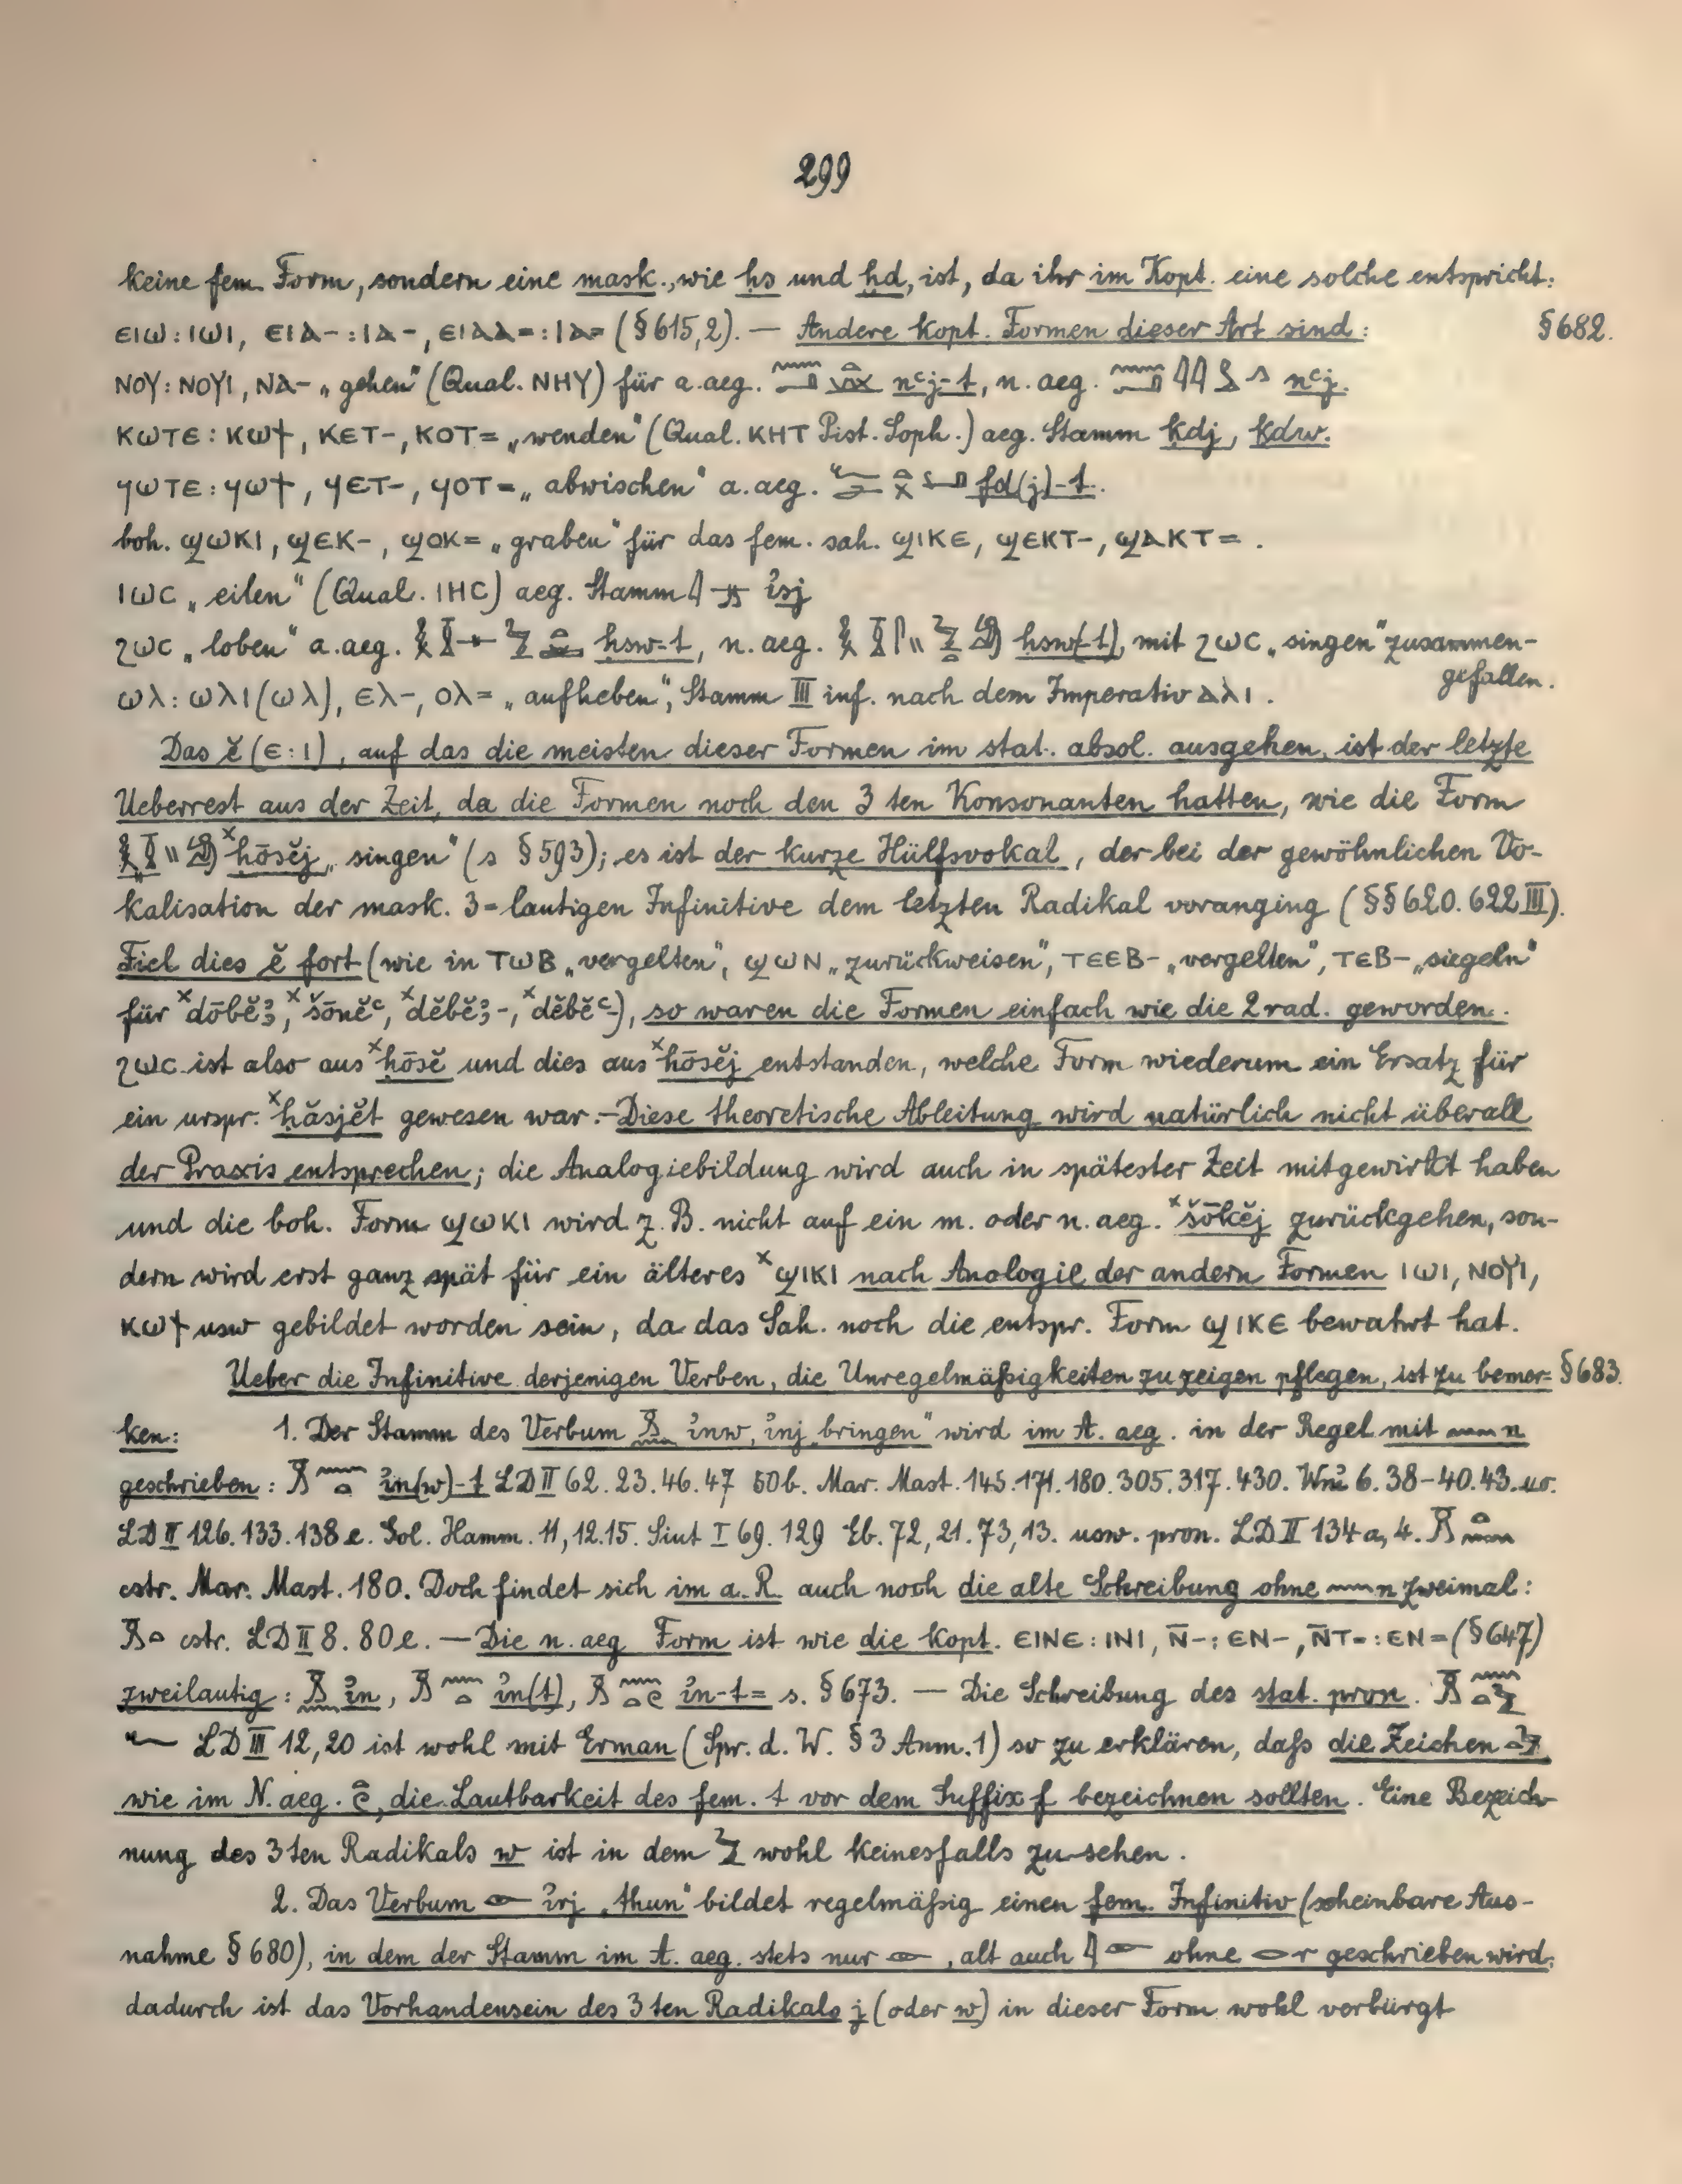 299
keine fem. Form, sondern eine mask., wie ḥs und ḥd, ist, da ihr im Kopt. eine solche entspricht:
ⲉⲓⲱ : ⲓⲱⲓ, ⲉⲓⲁ- : ⲓⲁ-, ⲉⲓⲁⲁ= : ⲓⲁ= (§ 615,2). — Andere kopt. Formen dieser Art sind: § 682.
ⲛⲟⲩ : ⲛⲟⲩⲓ, ⲛⲁ- „gehen“ (Qual. ⲛⲏⲩ) für a. aeg. nꜥj-t, n. aeg. nꜥj.
ⲕⲱⲧⲉ : ⲕⲱϯ, ⲕⲉⲧ-, ⲕⲟⲧ= „wenden“ (Qual. ⲕⲏⲧ Pist. Soph.) aeg. Stamm ḳdj, ḳdw.
ϥⲱⲧⲉ : ϥⲱϯ, ϥⲉⲧ-, ϥⲟⲧ= „abwischen“ a. aeg. fd(j)-t.
boh. ϣⲱⲕⲓ, ϣⲉⲕ-, ϣⲟⲕ= „graben“ für das fem. sah. ϣⲓⲕⲉ, ϣⲉⲕⲧ-, ϣⲁⲕⲧ= .
ⲓⲱⲥ „eilen“ (Qual. ⲓⲏⲥ) aeg. Stamm ꞽsj
ϩⲱⲥ „loben“ a. aeg. ḥsw-t, n. aeg. ḥsw(-t), mit ϩⲱⲥ „singen“ zusammen-
gefallen.
ⲱⲗ : ⲱⲗⲓ (ⲱⲗ), ⲉⲗ-, ⲟⲗ= „aufheben“, Stamm III inf. nach dem Imperativ ⲁⲗⲓ.
Das ĕ (ⲉ : ⲓ), auf das die meisten dieser Formen im stat. absol. ausgehen, ist der letzte
Ueberrest aus der Zeit, da die Formen noch den 3ten Konsonanten hatten, wie die Form
ˣḥōsĕj „singen“ (s § 593); es ist der kurze Hülfsvokal, der bei der gewöhnlichen Vo-
kalisation der mask. 3=lautigen Infinitive dem letzten Radikal voranging (§§ 620. 622 III).
Fiel dies ĕ fort (wie in ⲧⲱⲃ „vergelten“, ϣⲱⲛ „zurückweisen“, ⲧⲉⲉⲃ- „vergelten“, ⲧⲉⲃ- „siegeln“
für ˣdōbĕꜣ, ˣšōnĕꜥ, ˣdĕbĕꜣ-, ˣdĕbĕꜥ-), so waren die Formen einfach wie die 2rad. geworden.
ϩⲱⲥ ist also aus ˣḥōsĕ und dies aus ˣḥōsĕj entstanden, welche Form wiederum ein Ersatz für
ein urspr. ˣḥăsjĕt gewesen war. — Diese theoretische Ableitung wird natürlich nicht überall
der Praxis entsprechen; die Analogiebildung wird auch in spätester Zeit mitgewirkt haben
und die boh. Form ϣⲱⲕⲓ wird z. B. nicht auf ein m. oder n. aeg. ˣšōkĕj zurückgehen, son-
dern wird erst ganz spät für ein älteres ˣϣⲓⲕⲓ nach Analogie der andern Formen ⲓⲱⲓ, ⲛⲟⲩⲓ,
ⲕⲱϯ usw gebildet worden sein, da das Sah. noch die entspr. Form ϣⲓⲕⲉ bewahrt hat.
Ueber die Infinitive derjenigen Verben, die Unregelmäßigkeiten zu zeigen pflegen, ist zu bemer= § 683.
ken: 1. Der Stamm des Verbum ꞽnw, ꞽnj „bringen“ wird im A. aeg. in der Regel mit n
geschrieben: ꞽn(w)-t LD II 62. 23. 46. 47 50b. Mar. Mast. 145. 171. 180. 305. 317. 430. Wnꞽ 6. 38-40. 43. uo.
LD II 126. 133. 138 e. Gol. Hamm. 11, 12. 15. Siut I 69. 129 Eb. 72, 21. 73, 13. usw. pron. LD II 134 a, 4.
cstr. Mar. Mast. 180. Doch findet sich im a. R. auch noch die alte Schreibung ohne n zweimal:
cstr. LD II 8. 80 e. — Die n. aeg Form ist wie die kopt. ⲉⲓⲛⲉ : ⲓⲛⲓ, ⲛ̄- : ⲉⲛ-, ⲛ̄ⲧ= : ⲉⲛ= (§ 647)
zweilautig: ꞽn, ꞽn(t), ꞽn-t= s. § 673. — Die Schreibung des stat. pron.
LD III 12, 20 ist wohl mit Erman (Spr. d. W. § 3 Anm. 1) so zu erklären, daß die Zeichen
wie im N. aeg. , die Lautbarkeit des fem. t vor dem Suffix f bezeichnen sollten. Eine Bezeich-
nung des 3ten Radikals w ist in dem wohl keinesfalls zu sehen.
2. Das Verbum ꞽrj „thun“ bildet regelmäßig einen fem. Infinitiv (scheinbare Aus-
nahme § 680), in dem der Stamm im A. aeg. stets nur , alt auch ohne r geschrieben wird;
dadurch ist das Vorhandensein des 3ten Radikals j (oder w) in dieser Form wohl verbürgt